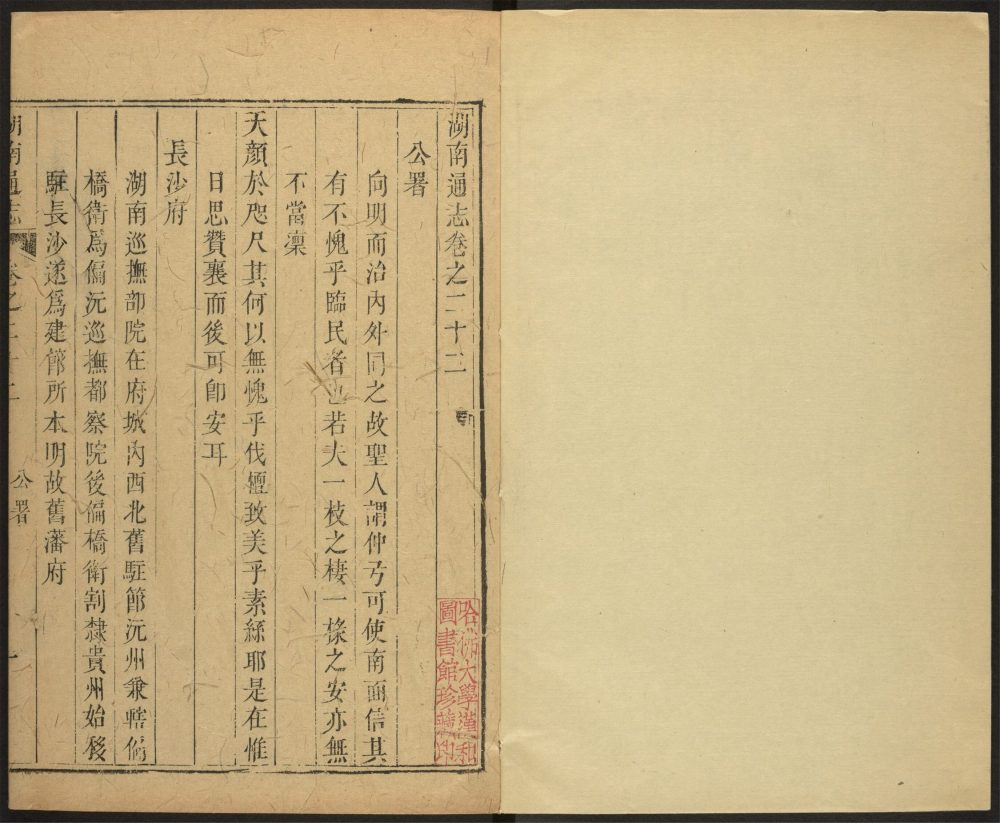 湖南通志卷之二十三
公署
向明而治內外同之故聖人謂仲弓可使南面信其
有不愧乎臨民者也若夫一枝之棲一椽之安亦無
不當凜
天顏於咫尺其何以無愧乎伐檀致美乎素絲耶是在惟
日思贊襄而後可卽安耳
長沙府
湖南巡撫部院在府城內西北舊駐節沅州兼轄偏
橋衛爲偏沅巡撫都察院後偏橋衛割隸貴州始移
駐長沙遂爲建節所本明故舊藩府
湖南通志 卷之二十三 公署 一
哈佛大學漢和
圖書館珍藏印